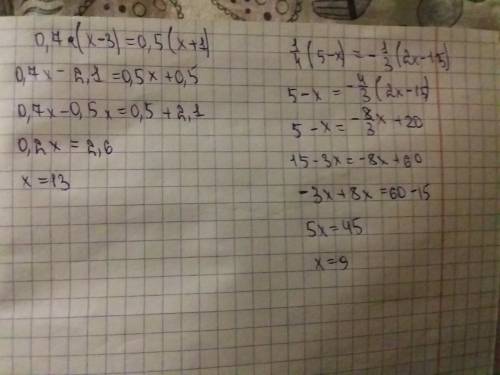 0,7(x-3)=0,5(x+1)
0,7x-2,1=0,5x+0,5
0,7x-0,5x=0,5+2,1
0,2x=2,6
x=13
1/4(5-x)=-1/3(2x-15)
5-x=-4/3(2x-15)
5-x=-8/3x+20
15-3x=-8x+60
-3x+8x=60-15
5x=45
x=9